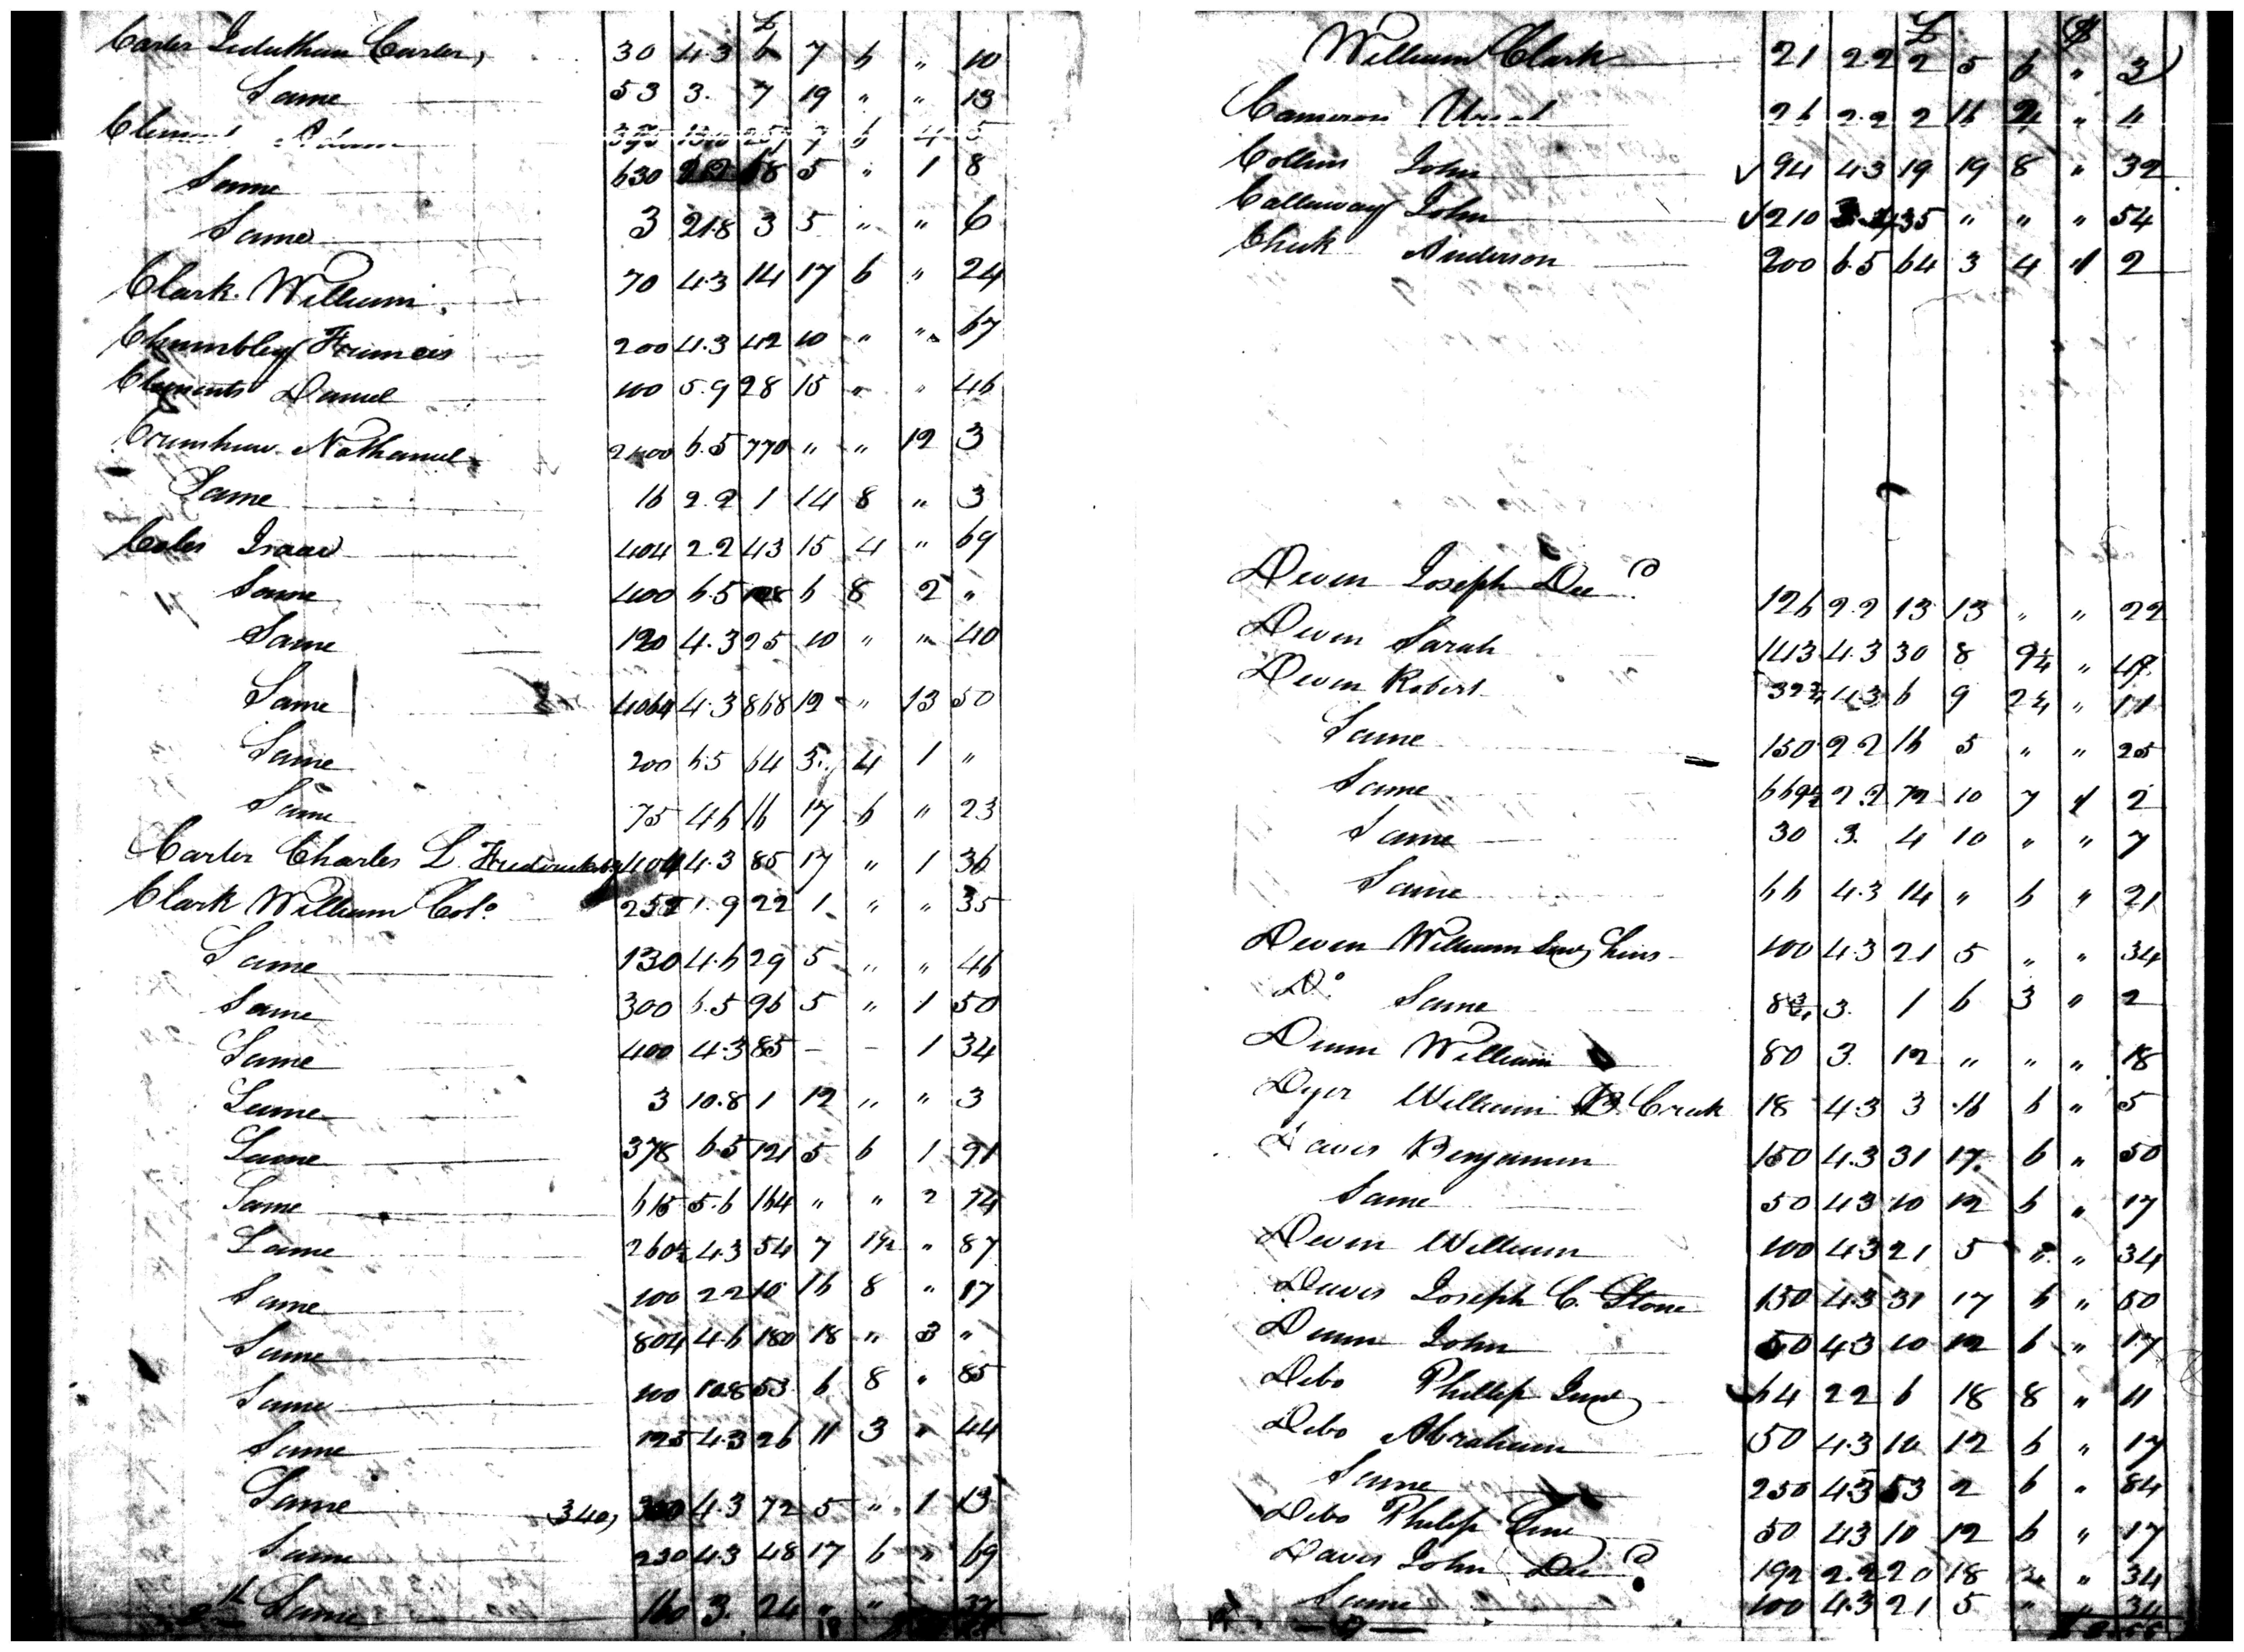 £
Carter Jeduthan Carter, 30 4.3 6 7 6 " 10
Same 53 3. 7 19 " " 13
Adam 7 6 4 5
Same 630 68 5 " 1 8
Same 3 21.8 3 5 " " 6
Clark William 70 4.3 14 17 6 " 24
Chumbley Francis 200 4.3 42 10 " " 67
Clements Daniel 100 5.9 28 15 " " 46
Crenshaw Nathaniel 2400 6.5 770 " " 12 3
Same 16 2.2 1 14 8 " 3
Coles Isaac 404 2.2 43 15 4 " 69
Same 400 6.5 128 6 8 2 "
Same 120 4.3 25 10 " " 40
Same 4064 4.3 868 12 " 13 50
Same 200 6.5 64 3 4 1 "
Same 75 4.6 16 17 6 " 23
Carter Charles L. 404 4.3 85 17 " 1 36
Clark William Colo. 252 1.9 22 1 " " 35
Same 130 4.6 29 5 " " 46
Same 300 6.5 96 5 " 1 50
Same 400 4.3 85 - - 1 34
Same 3 10.8 1 12 " " 3
Same 378 6.5 121 5 6 1 91
Same 615 5.6 164 " " 2 74
Same 260½ 4.3 54 7 1½ " 87
Same 100 2.2 10 16 8 " 17
Same 804 4.6 180 18 " 3 "
Same 100 10.8 53 6 8 " 85
Same 125 4.3 26 11 3 " 44
Same 340, 4.3 72 5 " 1 13
Same 230 4.3 48 17 6 " 69
Same 160 3. 24 " "
£ $
William Clark 21 2.2 2 5 6 " 3
Cameron 26 2.2 2 16 " 4
Collins John 94 4.3 19 19 8 " 32
Callaway John 210 35 " " " 54
Cheek Anderson 200 6.5 64 3 4 1 2
Deven Joseph Decd. 126 2.2 13 13 " " 22
Deven Sarah 143 4.3 30 8 9¼ " 47
Deven Robert 4.3 6 9 2¼ " 11
Same 150 2.2 16 5 " " 25
Same 669½ 2.2 72 10 7 1 2
Same 30 3. 4 10 " " 7
Same 66 4.3 14 " 6 " 21
Deven William 100 4.3 21 5 " " 34
Do. Same 8¾ 3. 1 6 3 " 2
Dunn William 80 3. 12 " " " 18
Dyer William B. Creek 18 4.3 3 16 6 " 5
Davis Benjamin 150 4.3 31 17 6 " 50
Same 50 4.3 10 12 6 " 17
Deven William 100 4.3 21 5 " " 34
Davis Joseph C. Stone 150 4.3 31 17 6 " 50
Dunn John 50 4.3 10 12 6 " 17
Debo Phillip Junr 64 2.2 6 18 8 " 11
Debo Abraham 50 4.3 10 12 6 " 17
Same 250 4.3 53 2 6 " 84
Debo Philip 50 4.3 10 12 6 " 17
Davis John Decd. 192 2.2 20 18 " 34
Same 100 4.3 21 5 " " 34